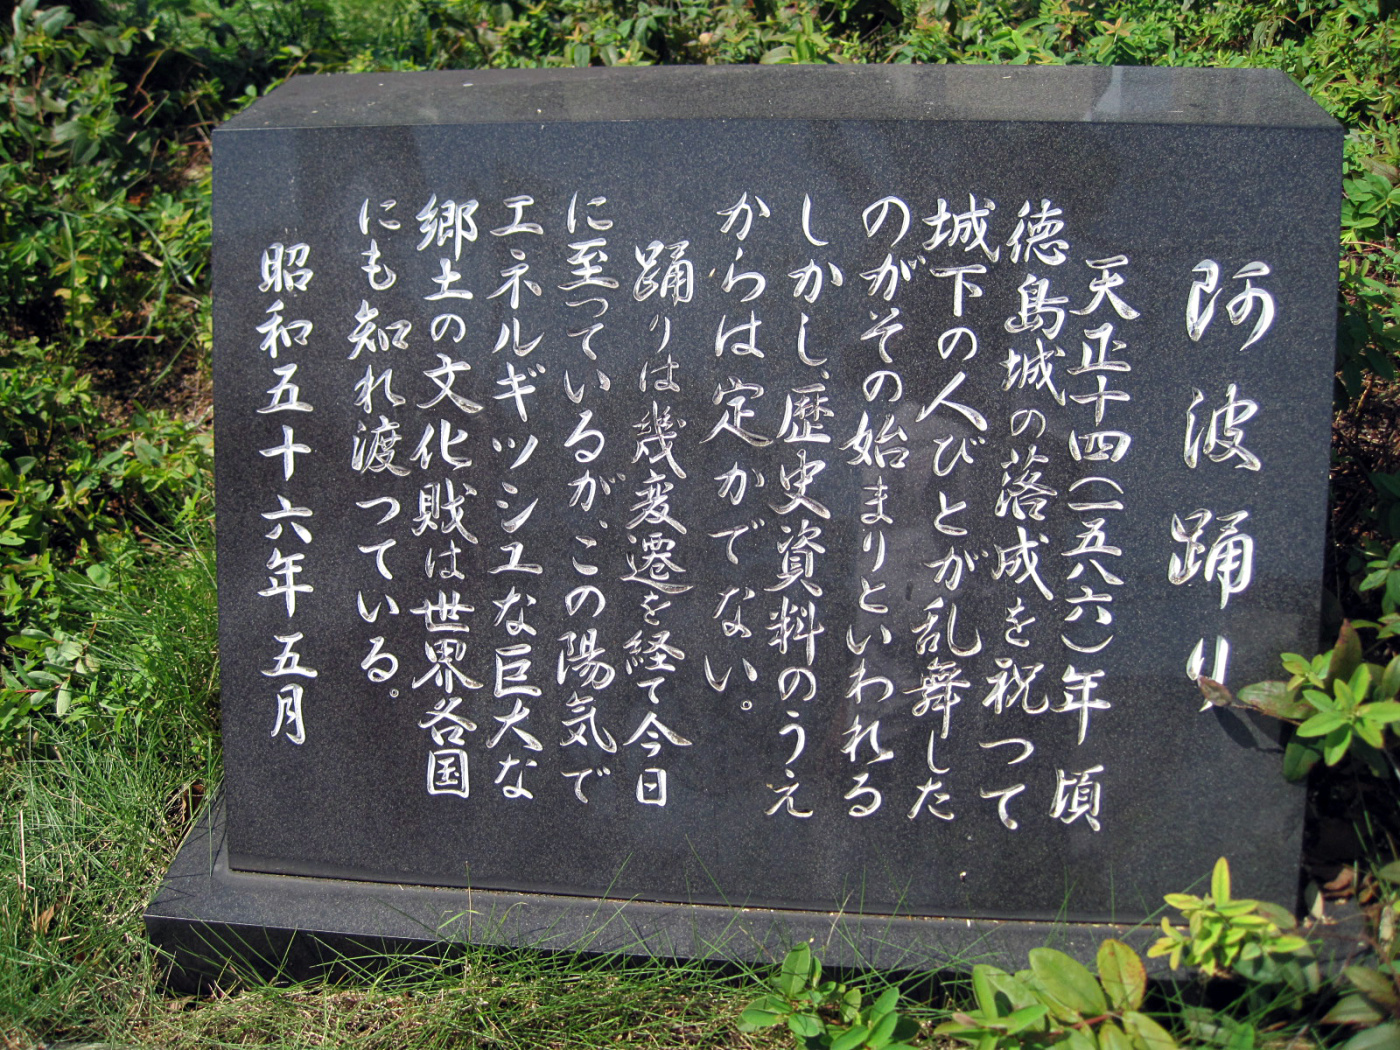 阿波踊り
天正十四(一五八六)年頃
徳島城の落成を祝つて
城下の人びとが乱舞した
のがその始まりといわれる
しかし、歴史資料のうえ
からは定かでない。
踊りは幾変遷を経て今日
に至つているが、この陽気で
エネルギツシユな巨大な
郷土の文化財は世界各国
にも知れ渡つている。
昭和五十六年五月